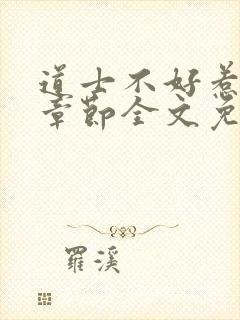 道士不好惹
章節全文免
羅溪